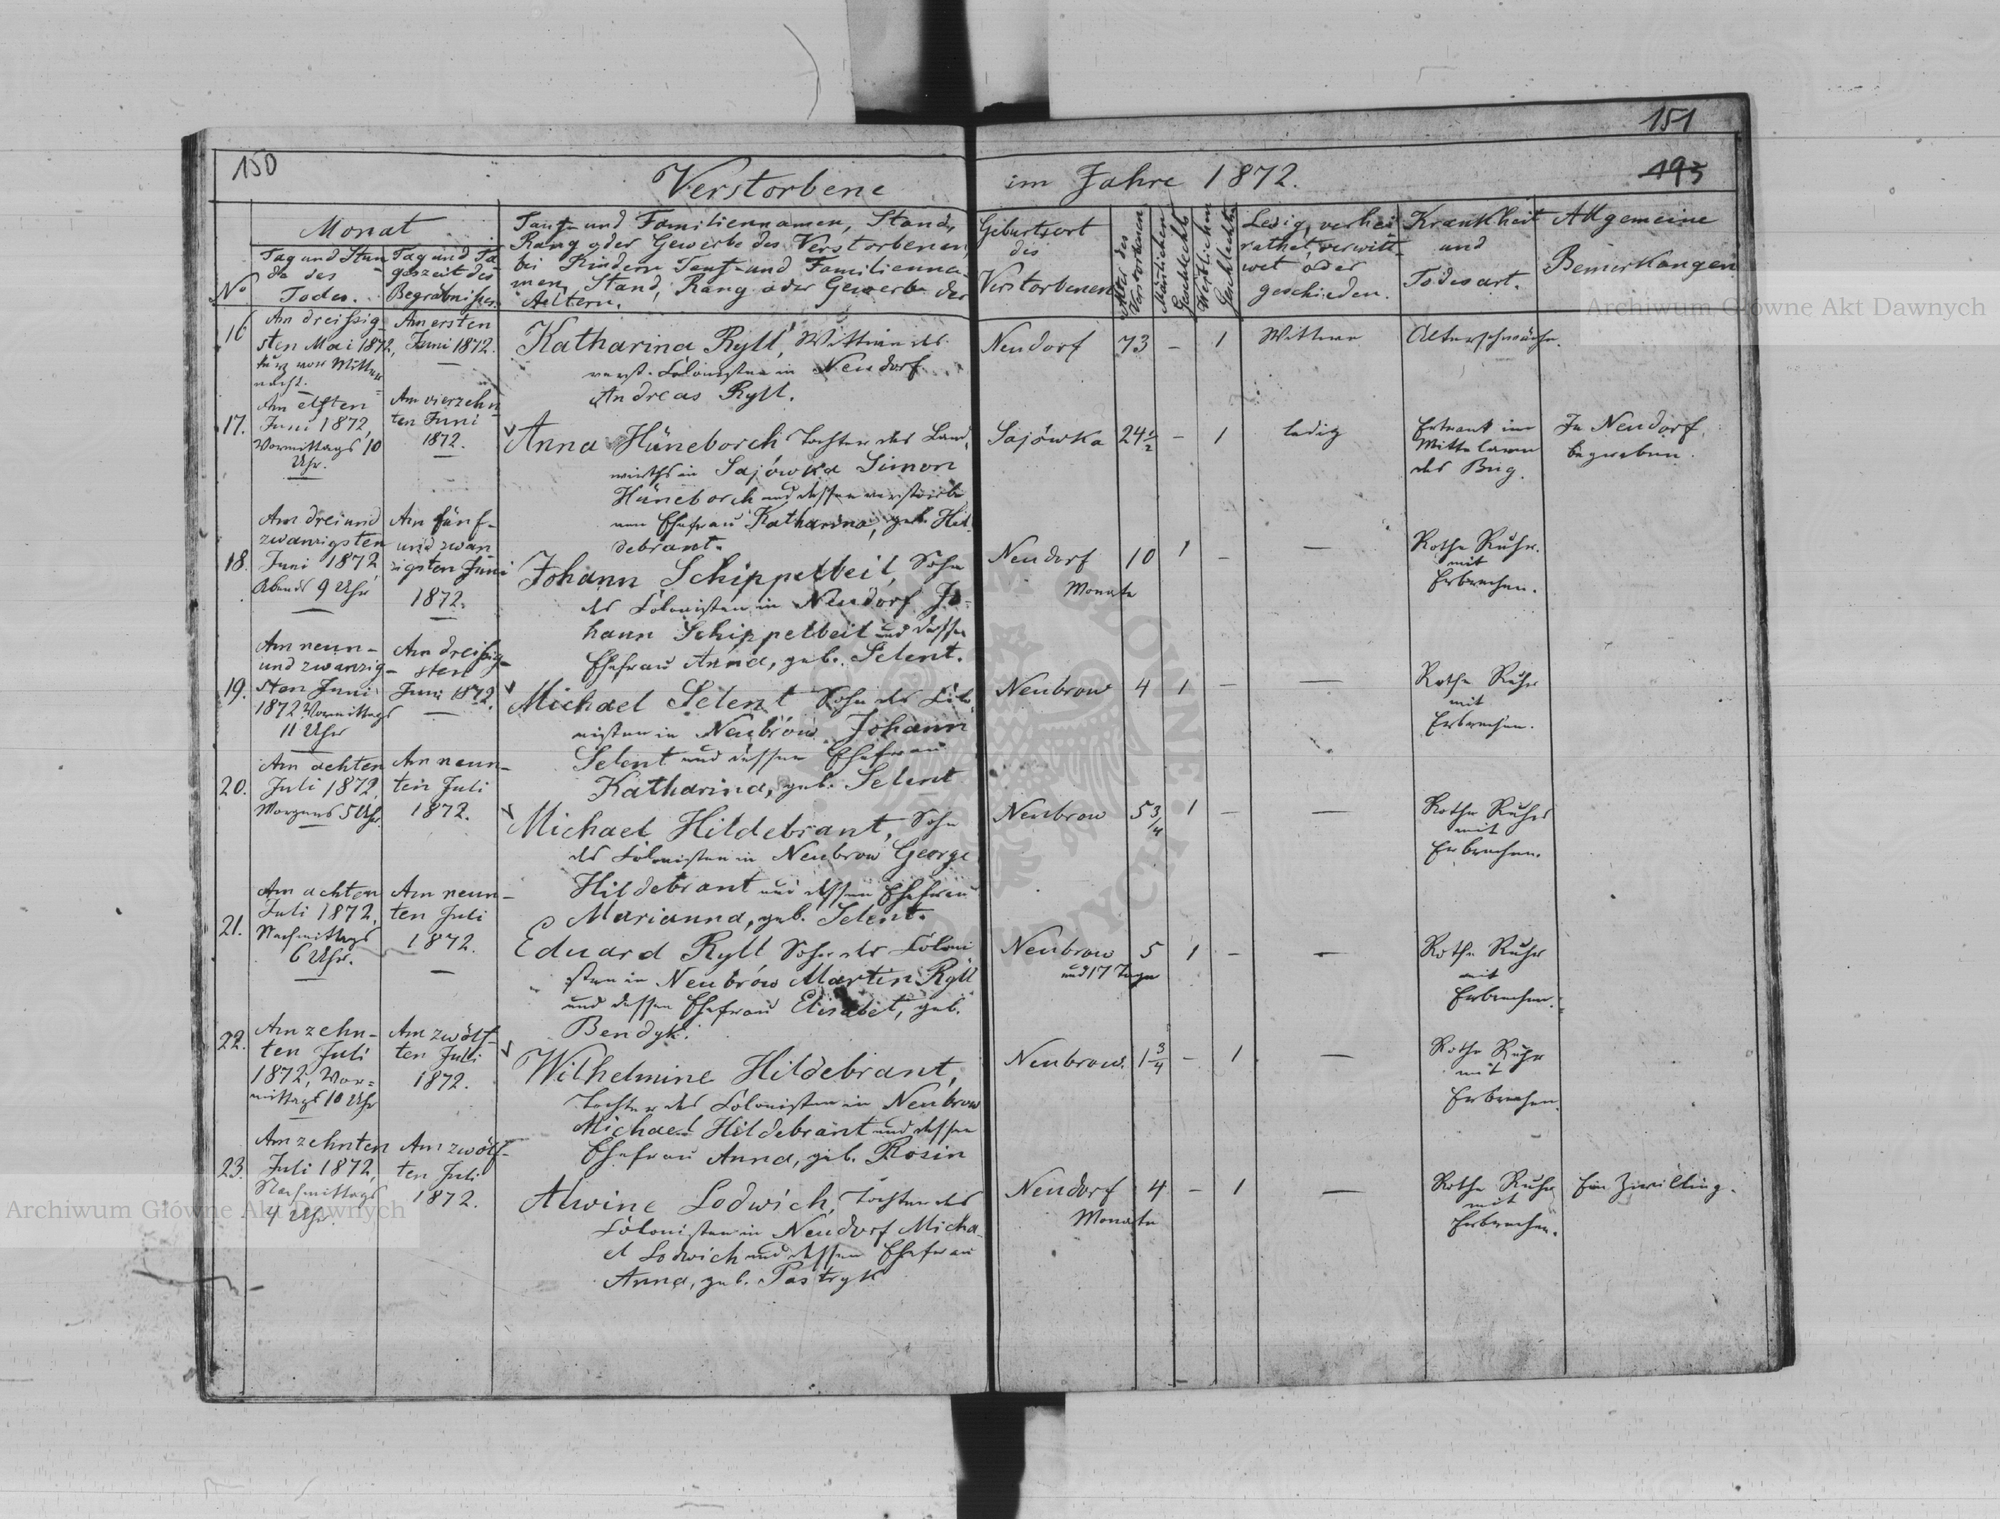 150
151
Verstorbene im Jahre 1872.
193
Monat
No
Tag und Stun
de des
Todes.
Tag und Ta
geszeit des
Begräbnisses.
Tauf- und Familiennamen, Stand,
Rang oder Gewerbe des Verstorbenen,
bei Kindern Tauf- und Familienna-
men, Stand, Rang oder Gewerbe der
Aeltern.
Geburtsort
des
Verstorbenen
Alter des
Verstorbenen
Männlichen
Geschlechts
Weiblichen
Geschlechts
Ledig, verhei
rathet, verwitt
wet oder
geschieden.
Krankheit
und
Todesart.
Allgemeine
Bemerkungen
16
Am dreißig-
sten Mai 1872,
kurz vor Mitter
nacht.
Am ersten
Juni 1872.
Katharina Ryll, Wittwe des
verst. Colonisten in Neudorf
Andreas Ryll.
Neudorf 73 – 1 Wittwe Altersschwäche.
17.
Am elften
Juni 1872,
Vormittags 10
Uhr.
Am vierzehn
ten Juni
1872.
Anna Hüneborch Tochter des Land
wirths in Sajówka Simon
Hüneborch und dessen verstorbe
nen Ehefrau Katharina, geb. Hil
debrant.
Sajówka 24 1/2 – 1 ledig
Ertrank im
des Bug.
In Neudorf
begraben.
18.
Am drei und
zwanzigsten
Juni 1872
Abends 9 Uhr
Am fünf-
und zwan
zigsten Juni
1872.
Johann Schippelbeil, Sohn
des Colonisten in Neudorf Jo-
hann Schippelbeil und dessen
Ehefrau Anna, geb. Selent.
Neudorf 10 1 – —
Monate
Rothe Ruhr
mit
Erbrechen.
19.
Am neun-
und zwanzig-
sten Juni
1872 Vormittags
11 Uhr
Am dreißig-
sten
Juni 1872.
Michael Selent Sohn des Colo
nisten in Neubrów Johann
Selent und dessen Ehefrau
Katharina, geb. Selent
Neubrow 4 1 – —
Rothe Ruhr
mit
Erbrechen.
20.
Am achten
Juli 1872,
Morgens 5 Uhr.
Am neun-
ten Juli
1872.
Michael Hildebrant, Sohn
des Colonisten in Neubrow George
Hildebrant und dessen Ehefrau
Marianna, geb. Selent.
Neubrow 5 3/4 1 – —
Rothe Ruhr
mit
Erbrechen.
21.
Am achten
Juli 1872,
Nachmittags
6 Uhr.
Am neun-
ten Juli
1872.
Eduard Ryll Sohn des Coloni
sten in Neubrów Martin Ryll
und dessen Ehefrau Elisabet, geb.
Bendyk.
Neubrow 5 1 – —
und 17 Tage
Rothe Ruhr
mit
Erbrechen.
22.
Am zehn-
ten Juli
1872, Vor-
mittags 10 Uhr
Am zwölf-
ten Juli
1872.
Wilhelmine Hildebrant,
Tochter des Colonisten in Neubrow
Michael Hildebrant und dessen
Ehefrau Anna, geb. Rosin
Neubrow. 1 3/4 – 1 —
Rothe Ruhr
mit
Erbrechen.
23.
Am zehnten
Juli 1872,
Nachmittags
4 Uhr.
Am zwölf-
ten Juli
1872.
Alwine Lodwich, Tochter des
Colonisten in Neudorf Micha
el Lodwich und dessen Ehefrau
Anna, geb. Pastryk
Neudorf 4 – 1 —
Monate
Rothe Ruhr
mit
Erbrechen.
Ein Zwilling.
Archiwum Główne Akt Dawnych
Archiwum Główne Akt Dawnych